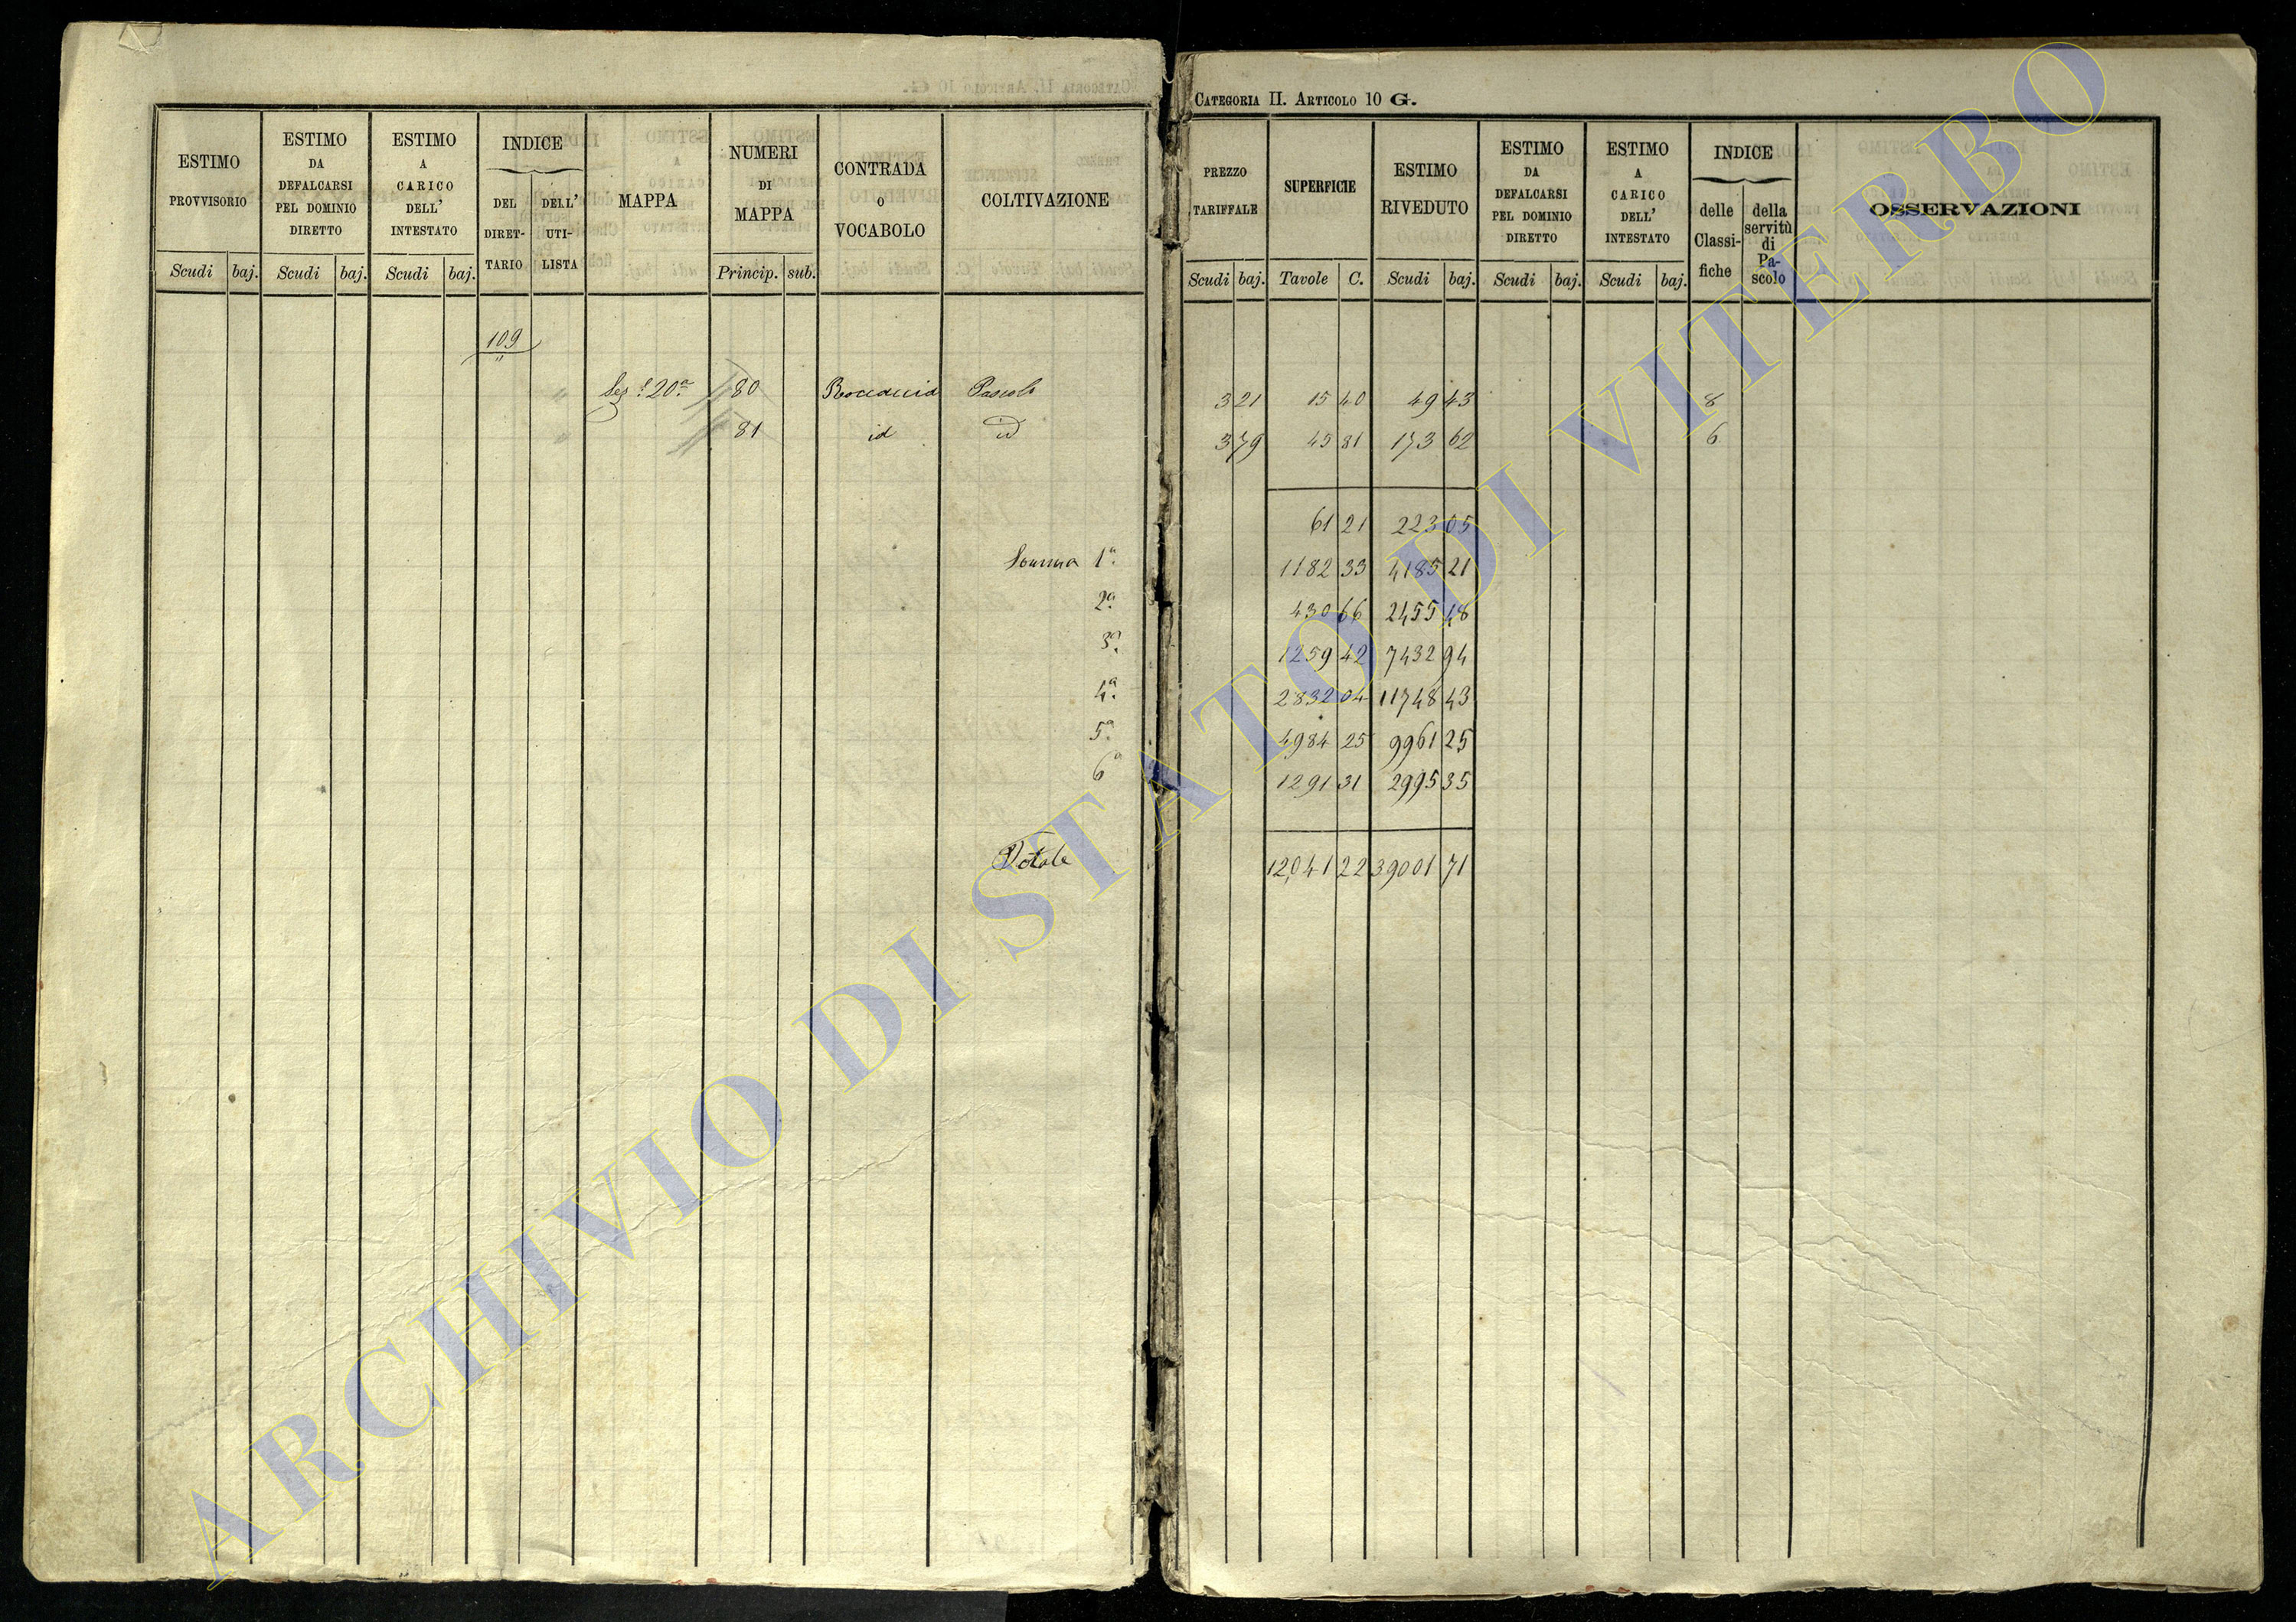 CATEGORIA II. ARTICOLO 10 G.
ESTIMO PROVVISORIO
Scudi baj.
ESTIMO DA DEFALCARSI PEL DOMINIO DIRETTO
Scudi baj.
ESTIMO A CARICO DELL' INTESTATO
Scudi baj.
INDICE
DEL DIRET-
TARIO
DELL' UTI-
LISTA
MAPPA
NUMERI DI MAPPA
Princip. sub.
CONTRADA O VOCABOLO
COLTIVAZIONE
PREZZO TARIFFALE
Scudi baj.
SUPERFICIE
Tavole C.
ESTIMO RIVEDUTO
Scudi baj.
ESTIMO DA DEFALCARSI PEL DOMINIO DIRETTO
Scudi baj.
ESTIMO A CARICO DELL' INTESTATO
Scudi baj.
INDICE
delle Classi-
fiche
della servitù di Pa-
scolo
OSSERVAZIONI
109
"
" Sez.e 20a 80 Pascolo 3 21 15 40 49 43 8
" 81 id id 3 79 45 81 173 62 6
61 21 223 05
Somma 1a. 1182 33 4185 21
2a. 430 66 2455 48
3a. 1259 42 7432 94
4a. 2832 04 11748 43
5a. 4984 25 9961 25
6a 1291 31 2995 35
Totale 12,041 22 39001 71
ARCHIVIO DI STATO DI VITERBO